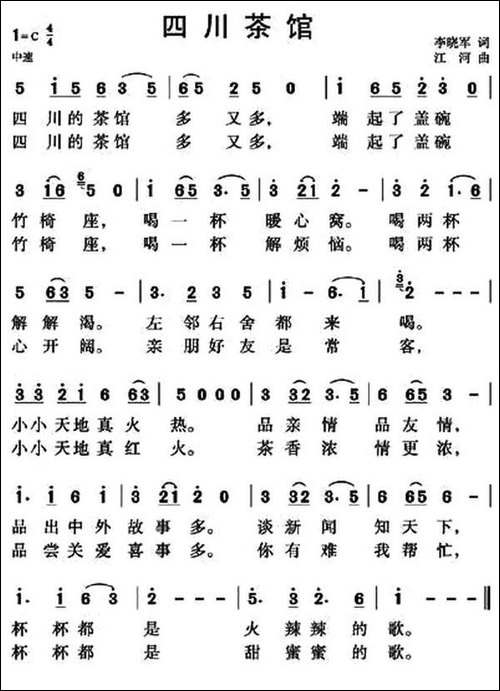 四川茶馆
1=C 4/4
中速
李晓军 词
江河 曲
5 1 5 6 3 5 | 6 5 2 5 0 | 1 6 5 2 3 0 |
四川的茶馆 多 又多, 端 起了盖碗
四川的茶馆 多 又多, 端 起了盖碗
3 1 6 6 5 0 | 1 6 5 3· 5 | 3 2 1 2 - | 3 2 1· 6 |
竹椅 座, 喝一杯 暖心窝。 喝两杯
竹椅 座, 喝一杯 解烦恼。 喝两杯
5 6 3 5 - | 3· 2 3 5 | 1 - 6· 1 | 3 2 - - - |
解解 渴。 左邻右舍都 来 喝。
心开 阔。 亲朋好友是 常 客,
3 3 2 1 6 6 3 | 5 0 0 0 0 | 3 3 2 3· 5 | 6 6 5 3 - |
小小天地真火 热。 品亲情 品友情,
小小天地真红 火。 茶香浓 情更浓,
1· 1 6 1 | 3 2 1 2 0 | 3 3 2 3· 5 | 6 6 5 6 - |
品 出中外 故事多。 谈新闻 知天下,
品 尝关爱 喜事多。 你有难 我帮忙,
1· 1 6 3 | 2 - - - | 5· 3 5 6 | 1 - - - |
杯 杯都 是 火 辣辣的 歌。
杯 杯都 是 甜 蜜蜜的 歌。